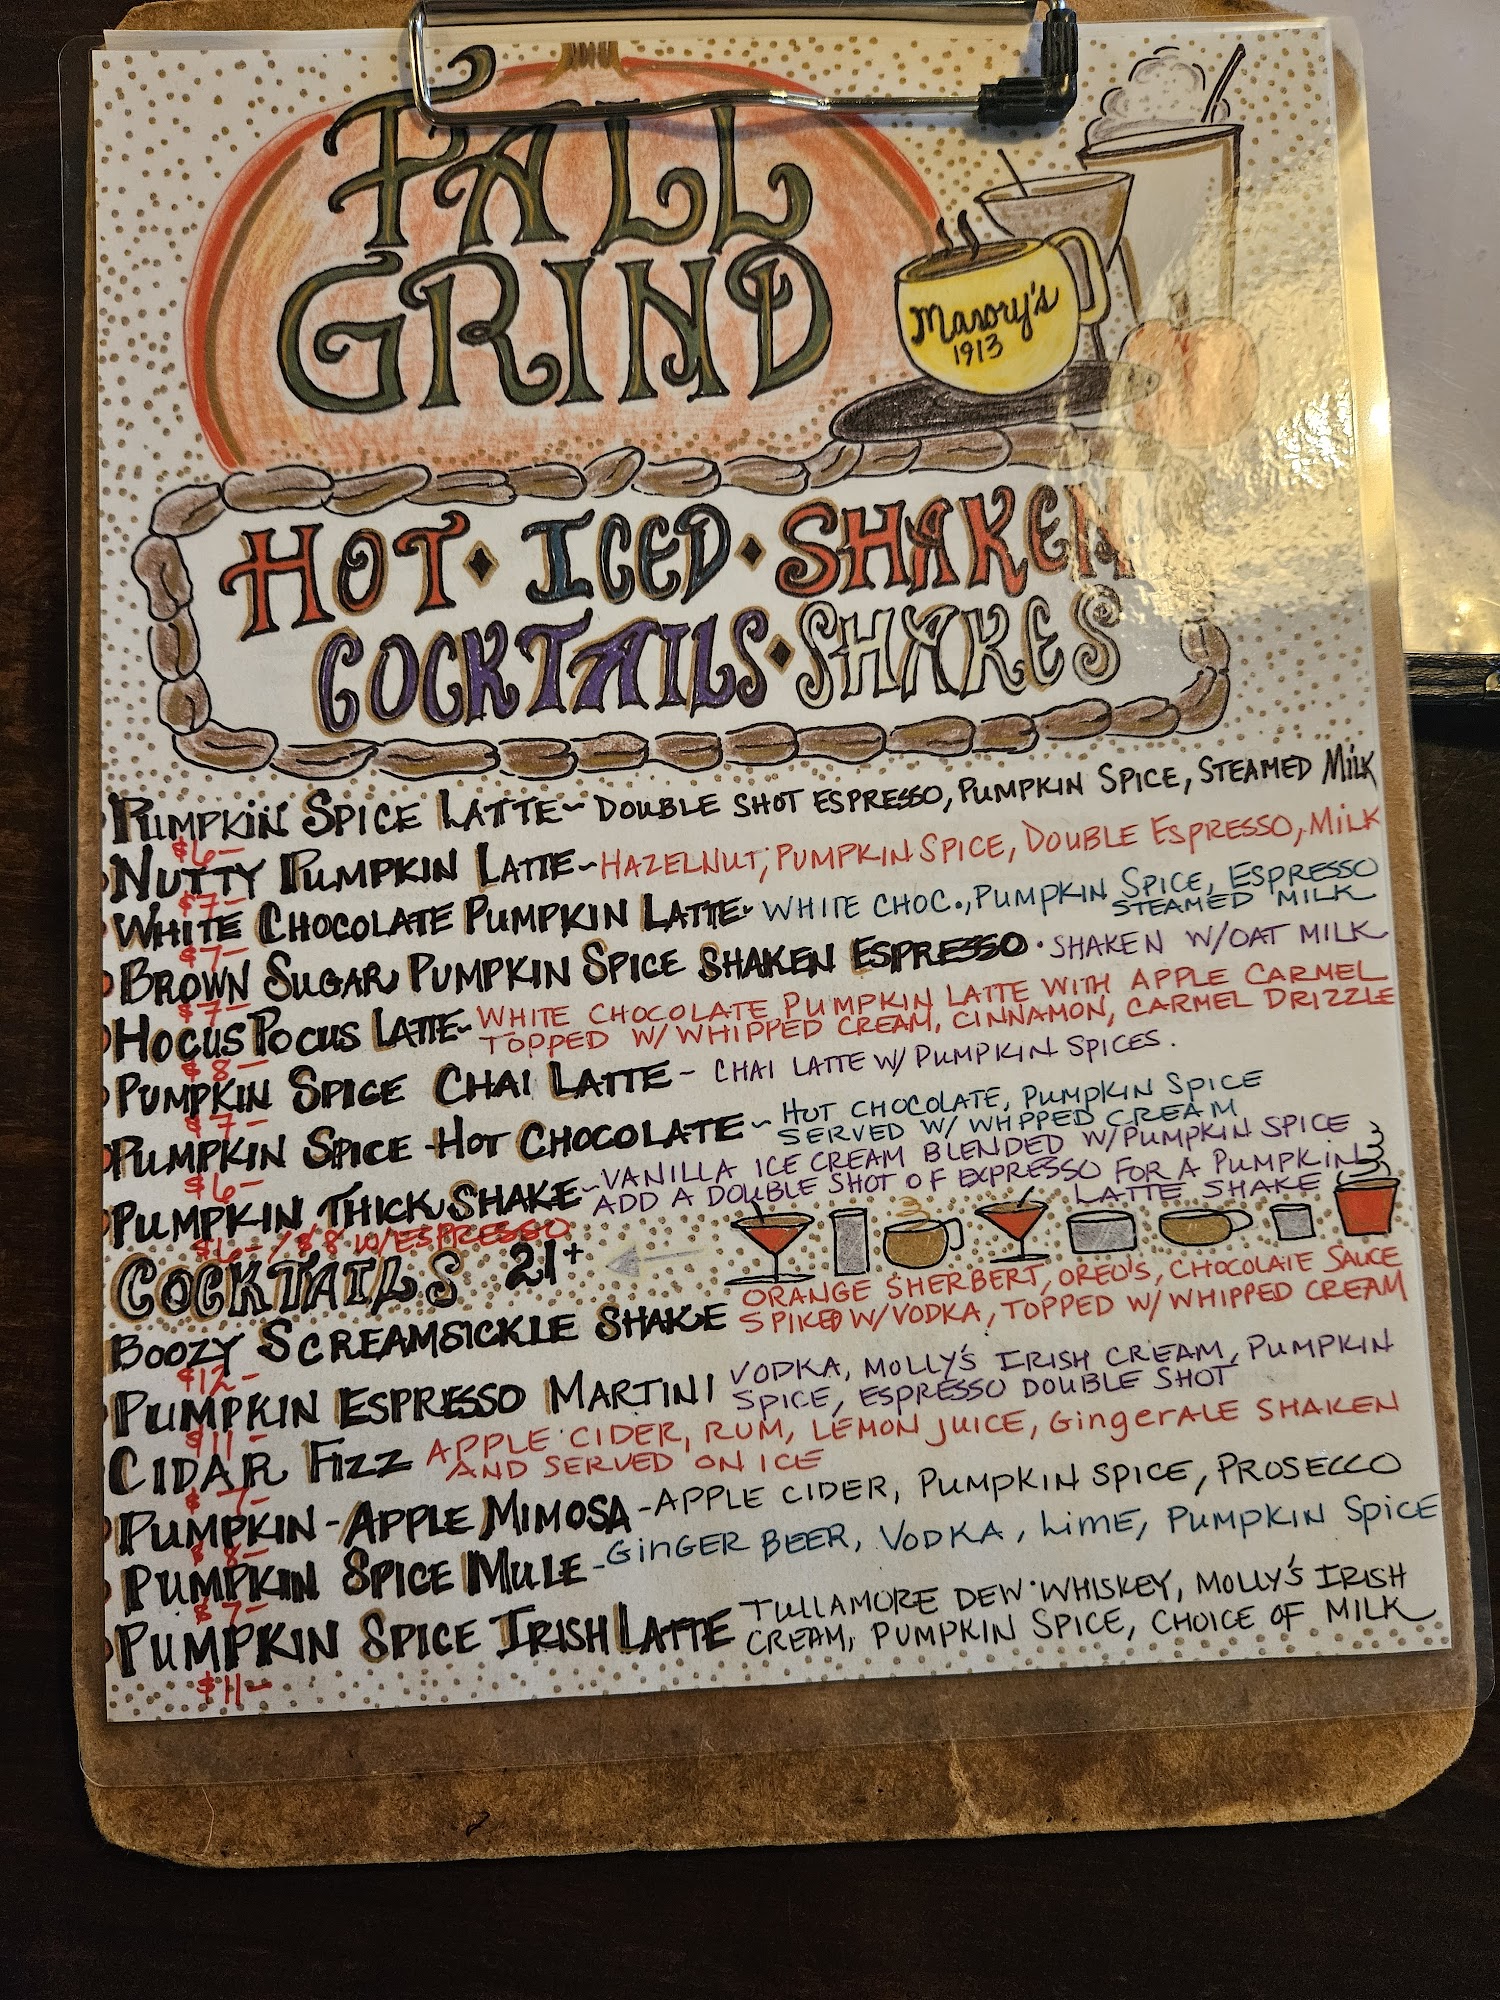 FALL
GRIND
Masory's
1913
HOT • ICED • SHAKEN
COCKTAILS • SHAKES
PUMPKIN SPICE LATTE ~ DOUBLE SHOT ESPRESSO, PUMPKIN SPICE, STEAMED MILK
$6-
NUTTY PUMPKIN LATTE ~ HAZELNUT, PUMPKIN SPICE, DOUBLE ESPRESSO, MILK
$7-
WHITE CHOCOLATE PUMPKIN LATTE ~ WHITE CHOC., PUMPKIN SPICE, ESPRESSO
STEAMED MILK
$7-
BROWN SUGAR PUMPKIN SPICE SHAKEN ESPRESSO • SHAKEN W/OAT MILK
$7-
HOCUS POCUS LATTE ~ WHITE CHOCOLATE PUMPKIN LATTE WITH APPLE CARMEL
TOPPED W/ WHIPPED CREAM, CINNAMON, CARMEL DRIZZLE
$8-
PUMPKIN SPICE CHAI LATTE - CHAI LATTE W/ PUMPKIN SPICES.
$7-
PUMPKIN SPICE HOT CHOCOLATE ~ HOT CHOCOLATE, PUMPKIN SPICE
SERVED W/ WHPPED CREAM
$6-
PUMPKIN THICK SHAKE ~ VANILLA ICE CREAM BLENDED W/PUMPKIN SPICE
ADD A DOUBLE SHOT OF EXPRESSO FOR A PUMPKIN
LATTE SHAKE
$6-/$8 W/ESPRESSO
COCKTAILS 21+
BOOZY SCREAMSICKLE SHAKE ORANGE SHERBERT, OREO'S, CHOCOLATE SAUCE
SPIKED W/VODKA, TOPPED W/ WHIPPED CREAM
$12-
PUMPKIN ESPRESSO MARTINI VODKA, MOLLY'S IRISH CREAM, PUMPKIN
SPICE, ESPRESSO DOUBLE SHOT
$11-
CIDAR FIZZ APPLE CIDER, RUM, LEMON JUICE, GingerALE SHAKEN
AND SERVED ON ICE
$7-
PUMPKIN-APPLE MIMOSA - APPLE CIDER, PUMPKIN SPICE, PROSECCO
$8-
PUMPKIN SPICE MULE - GinGER BEER, VODKA, Lime, PUMPKIN SPICE
$7-
PUMPKIN SPICE IRISH LATTE TULLAMORE DEW WHISKEY, MOLLY'S IRISH
CREAM, PUMPKIN SPICE, CHOICE OF MILK
$11-